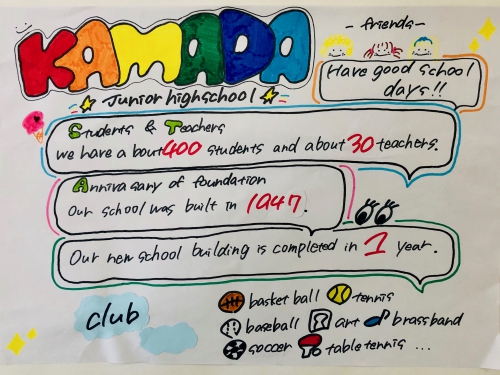 KAMADA
Junior highschool
- friends -
Have good school
days!!
Students & Teachers
we have a bout 400 students and about 30 teachers.
Annivasary of foundation
Our school was built in 1947.
Our new school building is completed in 1 year.
club
basket ball tennis
baseball art brassband
soccer table tennis ...